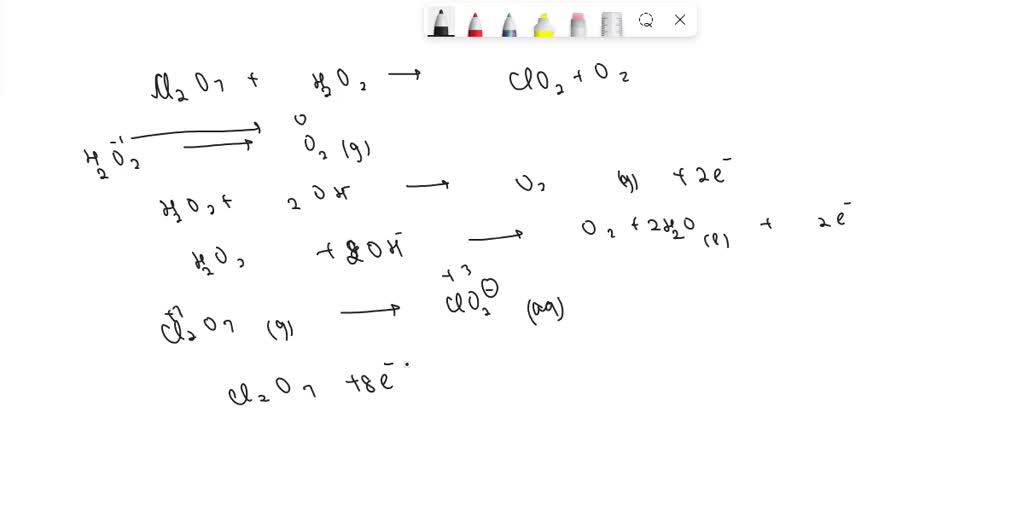 Cl₂O₇ + H₂O₂ → ClO₂ + O₂
H₂O₂⁻¹ → O₂ (g) 0
H₂O₂ + 2OH → O₂ (g) + 2e⁻
H₂O₂ + 2OH⁻ → O₂ + 2H₂O (l) + 2e⁻
+7 +3
Cl₂O₇ (g) → ClO₂⊖ (aq)
Cl₂O₇ + 8e⁻